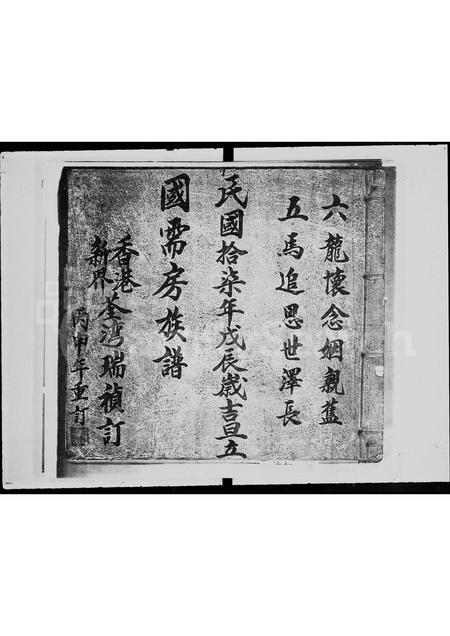 六龍懷念姻親舊
五馬追思世澤長
民國拾柒年戊辰歲吉旦立
國需房族譜
香港
新界
荃湾瑞禎訂
丙申年重訂